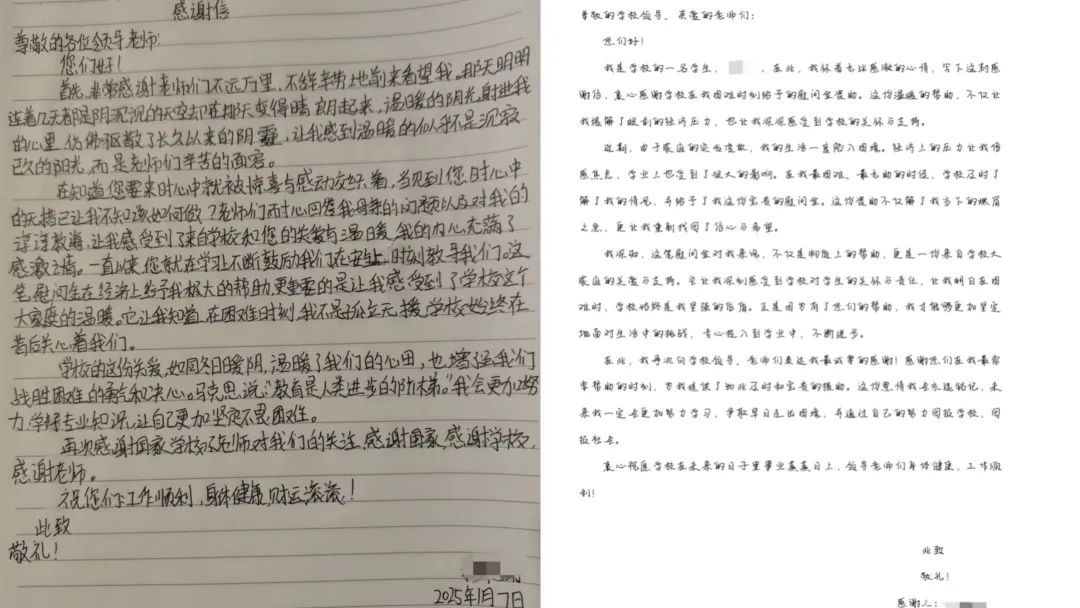 感谢信
尊敬的各位领导老师:
您们好!
首先,非常感谢老师们不远万里,不辞辛劳地前来看望我。那天明明
连着几天都是阴沉沉的天空却在那天变得晴朗起来,温暖的阳光射进我
的心里,仿佛驱散了长久以来的阴霾,让我感到温暖的似乎不是沉寂
已久的阳光,而是老师们辛苦的面容。
在知道您要来时心中就被惊喜与感动交织着,当见到您时心中
的无措已让我不知该如何做?老师们耐心回答我母亲的问题以及对我的
谆谆教诲,让我感受到了来自学校和您的关爱与温暖,我的内心充满了
感激之情。一直以来,您就在学习上不断鼓励我们在安全上时刻教导我们。这
笔慰问金在经济上给予我极大的帮助,更重要的是让我感受到了学校这个
大家庭的温暖。它让我知道,在困难时刻,我不是孤立无援,学校始终在
背后关心着我们。
学校的这份关爱,如同冬日暖阳,温暖了我们的心田,也增强我们
战胜困难的勇气和决心。马克思说:“教育是人类进步的阶梯。”我会更加努
力,学好专业知识,让自己更加坚定不畏困难。
再次感谢国家,学校及老师对我们的关注,感谢国家,感谢学校,
感谢老师。
祝您们工作顺利,身体健康,财运滚滚!
此致
敬礼!
2025年1月7日
尊敬的学校领导、亲爱的老师们:
您们好!
我是学校的一名学生, ,在此,我怀着无比感激的心情,写下这封感
谢信,衷心感谢学校在我困难时刻给予的慰问金援助。这份温暖的帮助,不仅让
我缓解了眼前的经济压力,也让我深深感受到学校的关怀与支持。
近期,由于家庭的突发变故,我的生活一度陷入困境。经济上的压力让我倍
感焦虑,学业上也受到了极大的影响。在我最困难、最无助的时候,学校及时了
解了我的情况,并给予了我这份宝贵的慰问金。这份援助不仅解了我当下的燃眉
之急,更让我重新找回了信心与希望。
我深知,这笔慰问金对我来说,不仅是物质上的帮助,更是一份来自学校大
家庭的关爱与支持。它让我深刻感受到学校对学生的关怀与责任,让我明白在困
难时,学校始终是我坚强的后盾。正是因为有了你们的帮助,我才能够更加坚定
地面对生活中的挑战,专心投入到学业中,不断进步。
在此,我再次向学校领导、老师们表达我最诚挚的感谢!感谢您们在我最需
要帮助的时刻,为我提供了如此及时和宝贵的援助。这份恩情我会永远铭记,未
来我一定会更加努力学习,争取早日走出困境,并通过自己的努力回报学校,回
报社会。
衷心祝愿学校在未来的日子里事业蒸蒸日上,领导老师们身体健康,工作顺
利!
此致
敬礼!
感谢人: